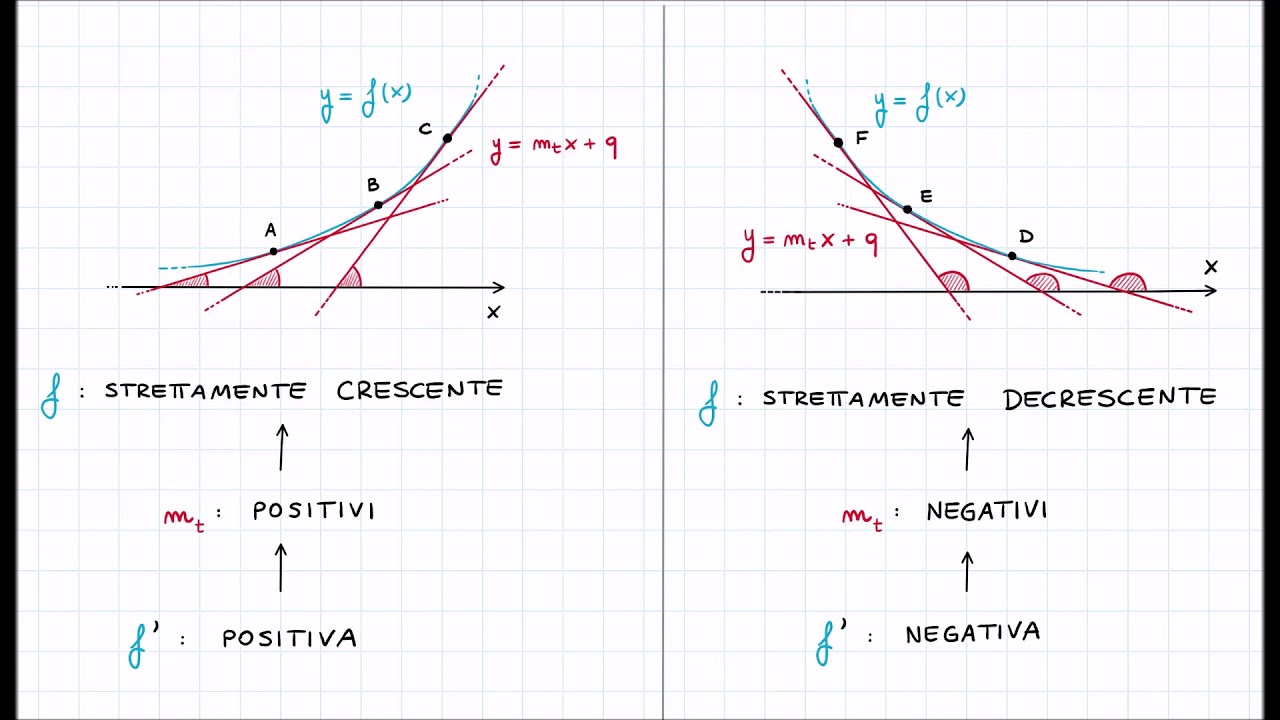 y = f(x)
C
y = mₜx + q
B
A
x
f : STRETTAMENTE CRESCENTE
mₜ : POSITIVI
f' : POSITIVA
y = f(x)
F
E
y = mₜx + q
D
x
f : STRETTAMENTE DECRESCENTE
mₜ : NEGATIVI
f' : NEGATIVA